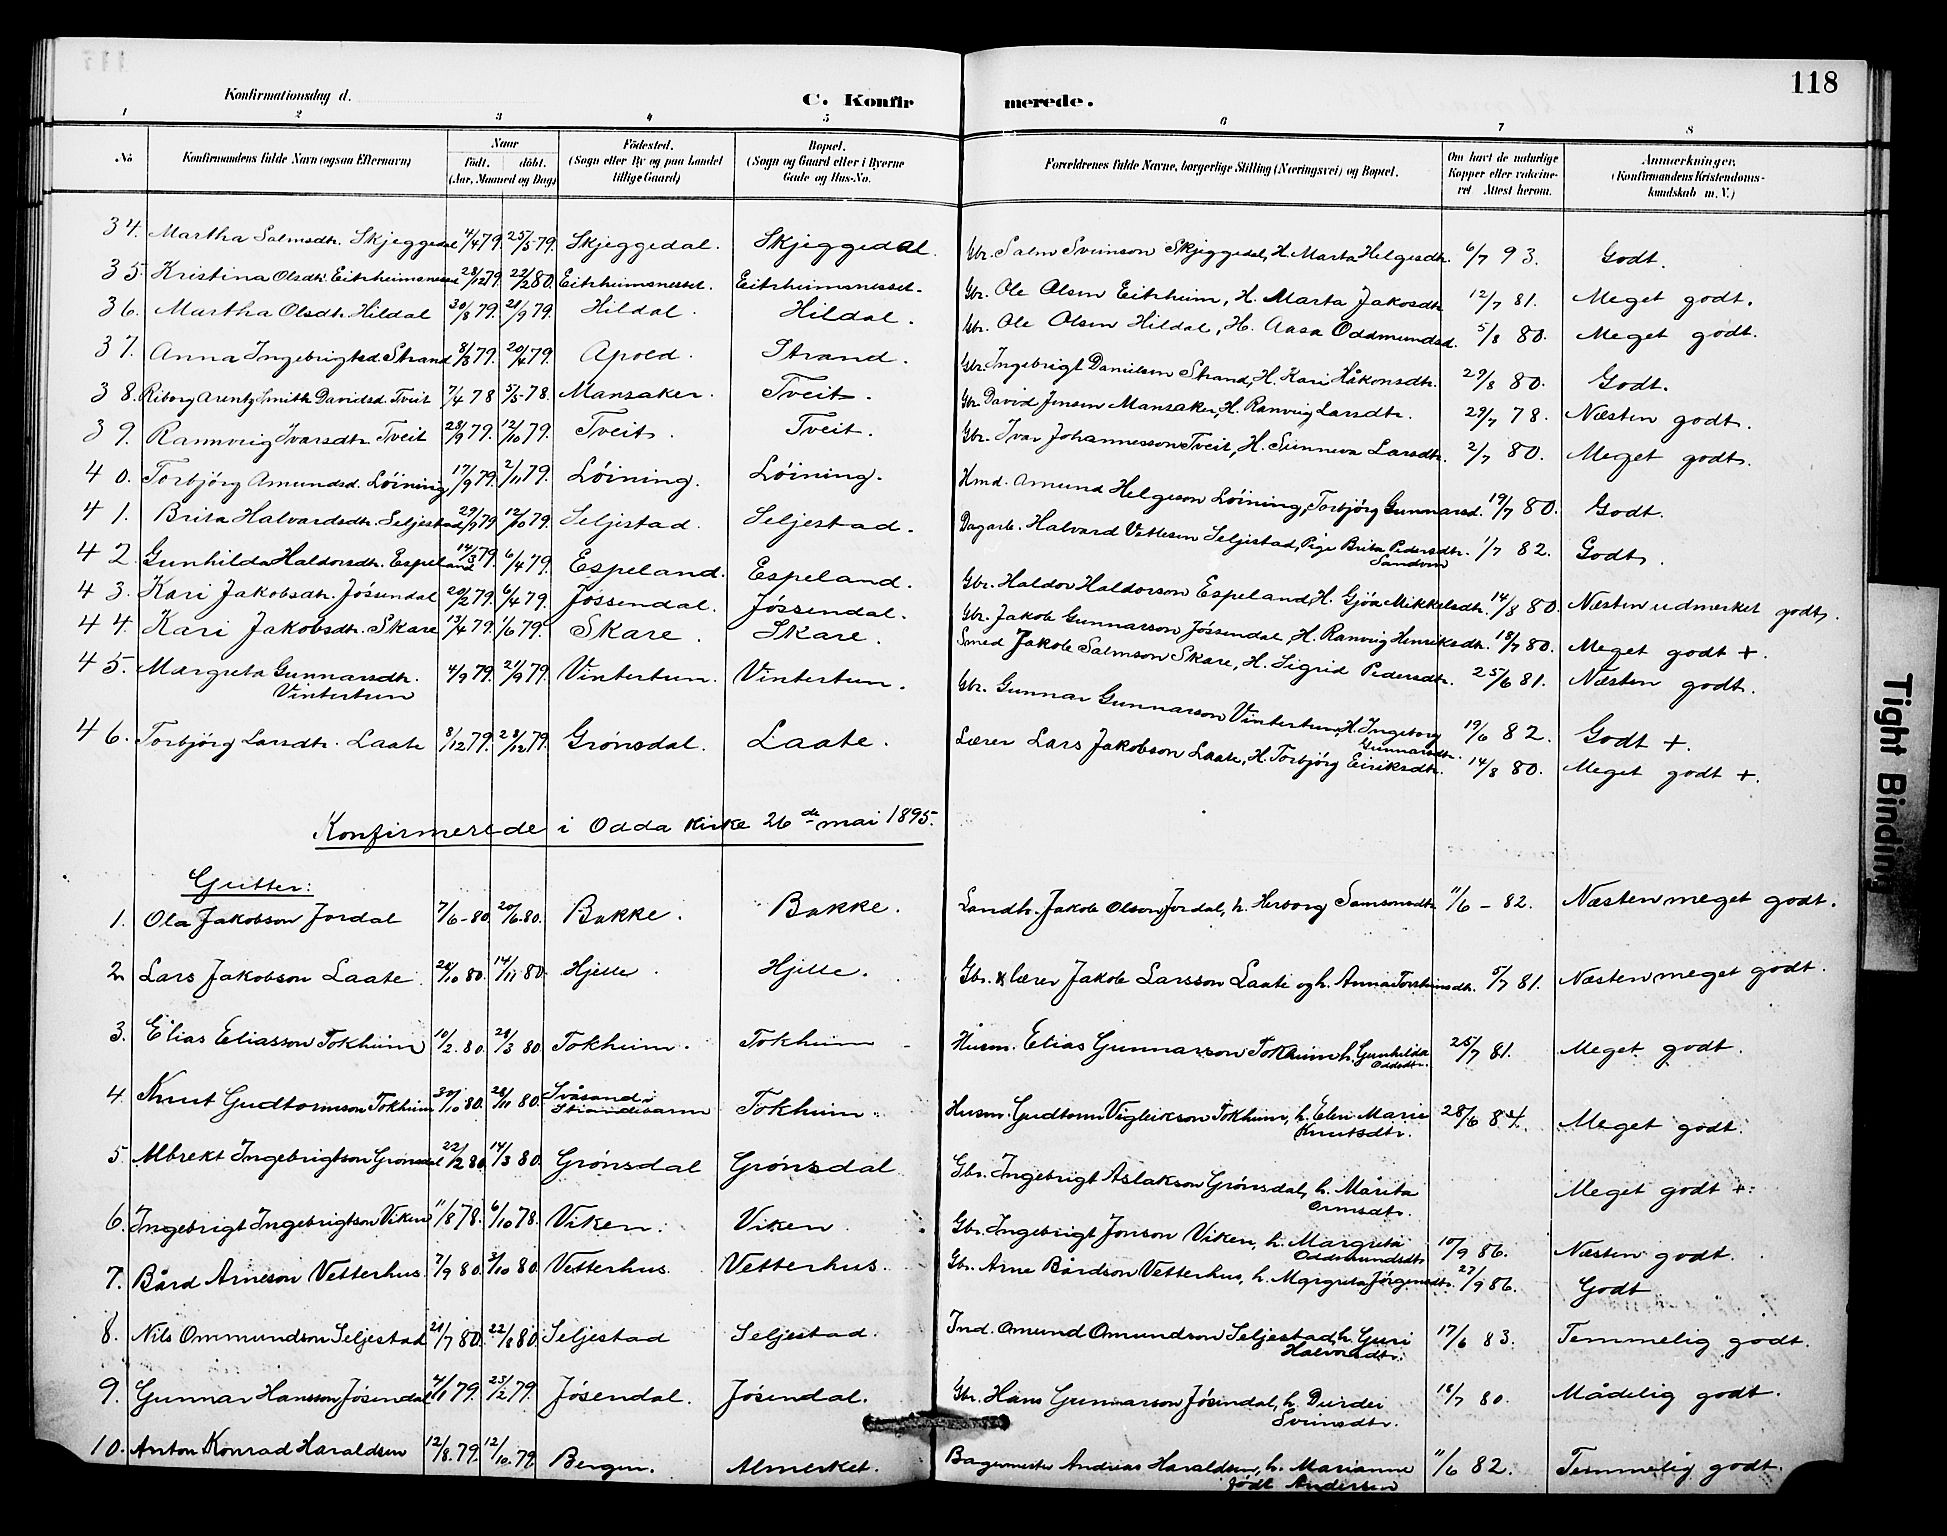 118
Konfirmationsdag d.
C. Konfirmerede.
1 2 3 4 5 6 7 8
No Konfirmandens fulde Navn (ogsaa Efternavn) Naar født. døbt. (Aar, Maaned og Dag) Fødested. (Sogn eller By og paa Landet tillige Gaard) Bopæl. (Sogn og Gaard eller i Byerne Gade og Hus-No. Forældrenes fulde Navne, borgerlige Stilling (Næringsvei) og Bopæl. Om havt de naturlige Kopper eller vakcineret Attest herom. Anmærkninger. (Konfirmandens Kristendomskundskab m. V.)
34. Martha Salmsdtr. Skjeggedal 4/4 79. 25/5 79. Skjeggedal. Skjeggedal. Gbr. Salm Sveinson Skjeggedal, H. Marta Helgesdtr. 6/7 93. Godt.
35. Kristina Olsdtr. Eitrheimsnesset 28/12 79. 22/2 80. Eitrheimsnesset. Eitrheimsnesset. Gbr. Ole Olsen Eitrheim, H. Marta Jakosdtr. 12/7 81. Meget godt.
36. Martha Olsdtr. Hildal 30/8 79. 21/9 79. Hildal. Hildal. Gbr. Ole Olsen Hildal, H. Aasa Oddmundsd. 5/8 80. Meget godt.
37. Anna Ingebrigtsd. Strand 8/3 79. 20/4 79. Apold. Strand. Gbr. Ingebrigt Danielsen Strand, H. Kari Håkonsdtr. 29/8 80. Godt.
38. Riborg Arentz Smith Davidsd. Tveit 7/4 78 5/5 78. Mansaker. Tveit. Gbr. David Jensen Mansaker, H. Ranveig Larsdtr. 29/7 78. Næsten godt.
39. Rannveig Ivarsdtr. Tveit 28/9 79. 12/10 79. Tveit. Tveit. Gbr. Ivar Johannesson Tveit, H. Sunneva Larsdtr. 2/7 80. Meget godt.
40. Torbjörg Amundsd. Löining 17/9 79. 2/11 79. Löining. Löining. Kmd. Amund Helgeson Löining, Torbjörg Gunnarsd. 19/7 80. Godt.
41. Brita Halvardsdtr. Seljestad 29/9 79 12/10 79. Seljestad. Seljestad. Dagarb. Halvard Vettesen Seljestad, Pige Brita Pedersdtr. Sandven 1/7 82. Godt.
42. Gunhilda Haldorsdtr. Espeland 14/3 79. 6/4 79. Espeland. Espeland. Gbr. Haldor Haldorson Espeland, H. Gjöa Mikkelsdtr. 14/8 80. Næsten udmerket godt.
43. Kari Jakobsdtr. Jössendal 20/2 79. 6/4 79. Jössendal. Jössendal. Gbr. Jakob Gunnarsson Jössendal, H. Ranveig Henriksdtr. 18/7 80. Meget godt +.
44. Kari Jakobsdtr. Skare 13/4 79. 1/6 79. Skare. Skare. Smed Jakob Salmson Skare, H. Sigrid Pedersdtr. 25/6 81. Næsten godt.
45. Margreta Gunnarsdtr. Vintertun 4/9 79. 21/9 79. Vintertun. Vintertun. Gbr. Gunnar Gunnarson Vintertun, H. Ingeborg Gunnarsdtr. 19/6 82. Godt +.
46. Torbjörg Larsdtr. Laate 8/12 79. 28/12 79. Grönsdal. Laate. Lærer Lars Jakobson Laate, H. Torbjörg Eiriksdtr. 14/8 80. Meget godt +.
Konfirmerede i Odda Kirke 26de mai 1895.
Gutter:
1. Ola Jakobson Jordal 7/6 - 80. 20/6 80. Bakke. Bakke. Landh. Jakob Olson Jordal, h. Herborg Samsonsdtr. 11/6 - 82. Næsten meget godt.
2. Lars Jakobson Laate. 28/10 80. 14/11 80. Hjelle. Hjelle. Gbr. & lærer Jakob Larsson Laate og h. Anna Torsteinsdtr. 5/7 81. Næsten meget godt.
3. Elias Eliasson Tokheim 10/2 80. 21/3 80. Tokheim. Tokheim Husm. Elias Gunnarsson Tokheim h. Gunhilda Oddsdtr. 25/7 81. Meget godt.
4. Knut Gudtormson Tokheim 30/10 80. 28/11 80. Svåsand i Strandebarm Tokheim. Husm. Gudtorm Vigleikson Tokheim, h. Elen Marie Knutsdtr. 28/6 84. Meget godt.
5. Albrekt Ingebrigtson Grönsdal 22/2 80. 14/3 80. Grönsdal Grönsdal Gbr. Ingebrigt Aslakson Grönsdal, h. Marita Ormsdtr. Meget godt +.
6. Ingebrigt Ingebrigtson Viken 11/8 78. 6/10 78. Viken. Viken. Gbr. Ingebrigt Jonson Viken, h. Margreta Oddmundsdtr. 10/9 86. Næsten godt.
7. Bård Arneson Vetterhus 7/9 80. 3/10 80. Vetterhus. Vetterhus. Gbr. Arne Bårdson Vetterhus, h. Margreta Jörgensdtr. 27/9 86. Godt
8. Nils Ommundson Seljestad 21/7 80. 22/8 80. Seljestad Seljestad. Ind. Omund Omundson Seljestad, h. Guri Halvorsdtr. 17/6 83. Temmelig godt.
9. Gunnar Hansson Jösendal 4/1 79. 23/2 79. Jösendal. Jösendal. Gbr. Hans Gunnarson Jösendal, h. Durdei Sveinsdtr. 18/7 80. Mådelig godt.
10. Anton Konrad Haraldsen 12/8 79. 12/10 79. Bergen. Almerket. Bagermester Andreas Haraldsen, h. Marianne født Andersen 11/6 82. Temmelig godt.
Tight Binding